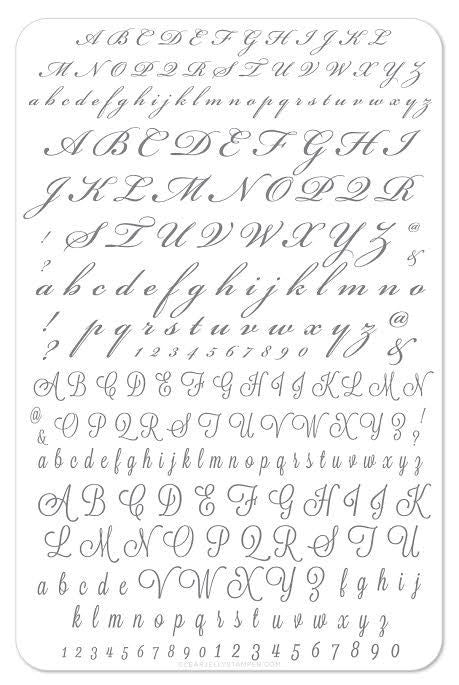 A B C D E F G H I J K L
M N O P Q R S T U V W X Y Z
a b c d e f g h i j k l m n o p q r s t u v w x y z
A B C D E F G H I
J K L M N O P Q R
! ? S T U V W X Y Z @ &
a b c d e f g h i j k l m n o
! ? p q r s t u v w x y z @ &
1 2 3 4 5 6 7 8 9 0
A B C D E F G H I J K L M N
@ & O P Q R S T U V W X Y Z ! ?
a b c d e f g h i j k l m n o p q r s t u v w x y z
A B C D E F G H I J K
L M N O P Q R S T U
a b c d e V W X Y Z f g h i j
k l m n o p q r s t u v w x y z
1 2 3 4 5 6 7 8 9 0 1 2 3 4 5 6 7 8 9 0
©CLEARJELLYSTAMPER.COM